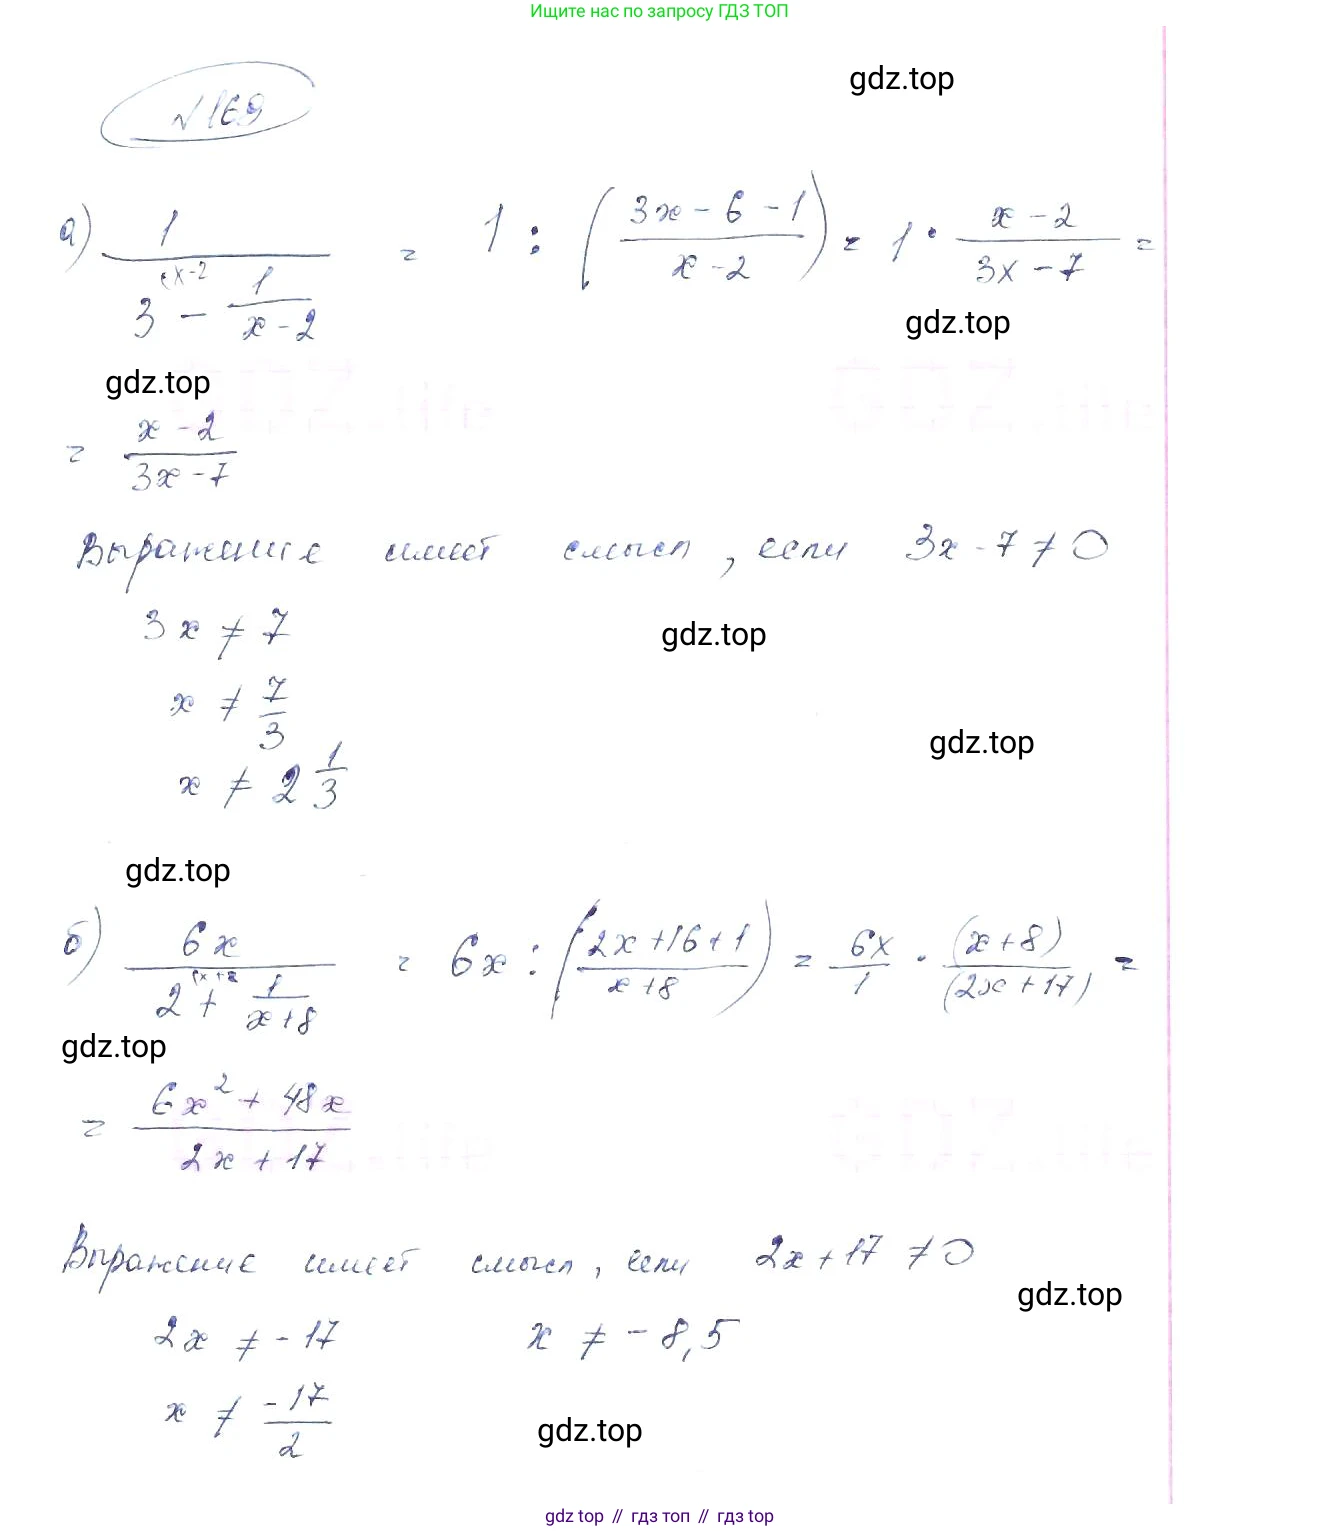 Ищите нас по запросу ГДЗ ТОП
gdz.top
№169
а) 1/(3 - 1/(x-2)) = 1 : ((3x-6-1)/(x-2)) = 1 · (x-2)/(3x-7) =
gdz.top
gdz.top
= (x-2)/(3x-7)
Выражение имеет смысл, если 3x-7≠0
3x ≠ 7
gdz.top
x ≠ 7/3
gdz.top
x ≠ 2 1/3
gdz.top
б) 6x/(2 + 1/(x+8)) = 6x : ((2x+16+1)/(x+8)) = 6x/1 · (x+8)/(2x+17) =
gdz.top
= (6x² + 48x)/(2x+17)
Выражение имеет смысл, если 2x+17 ≠0
gdz.top
2x ≠ -17 x ≠ -8,5
x ≠ -17/2
gdz.top
gdz top // гдз топ // gdz top